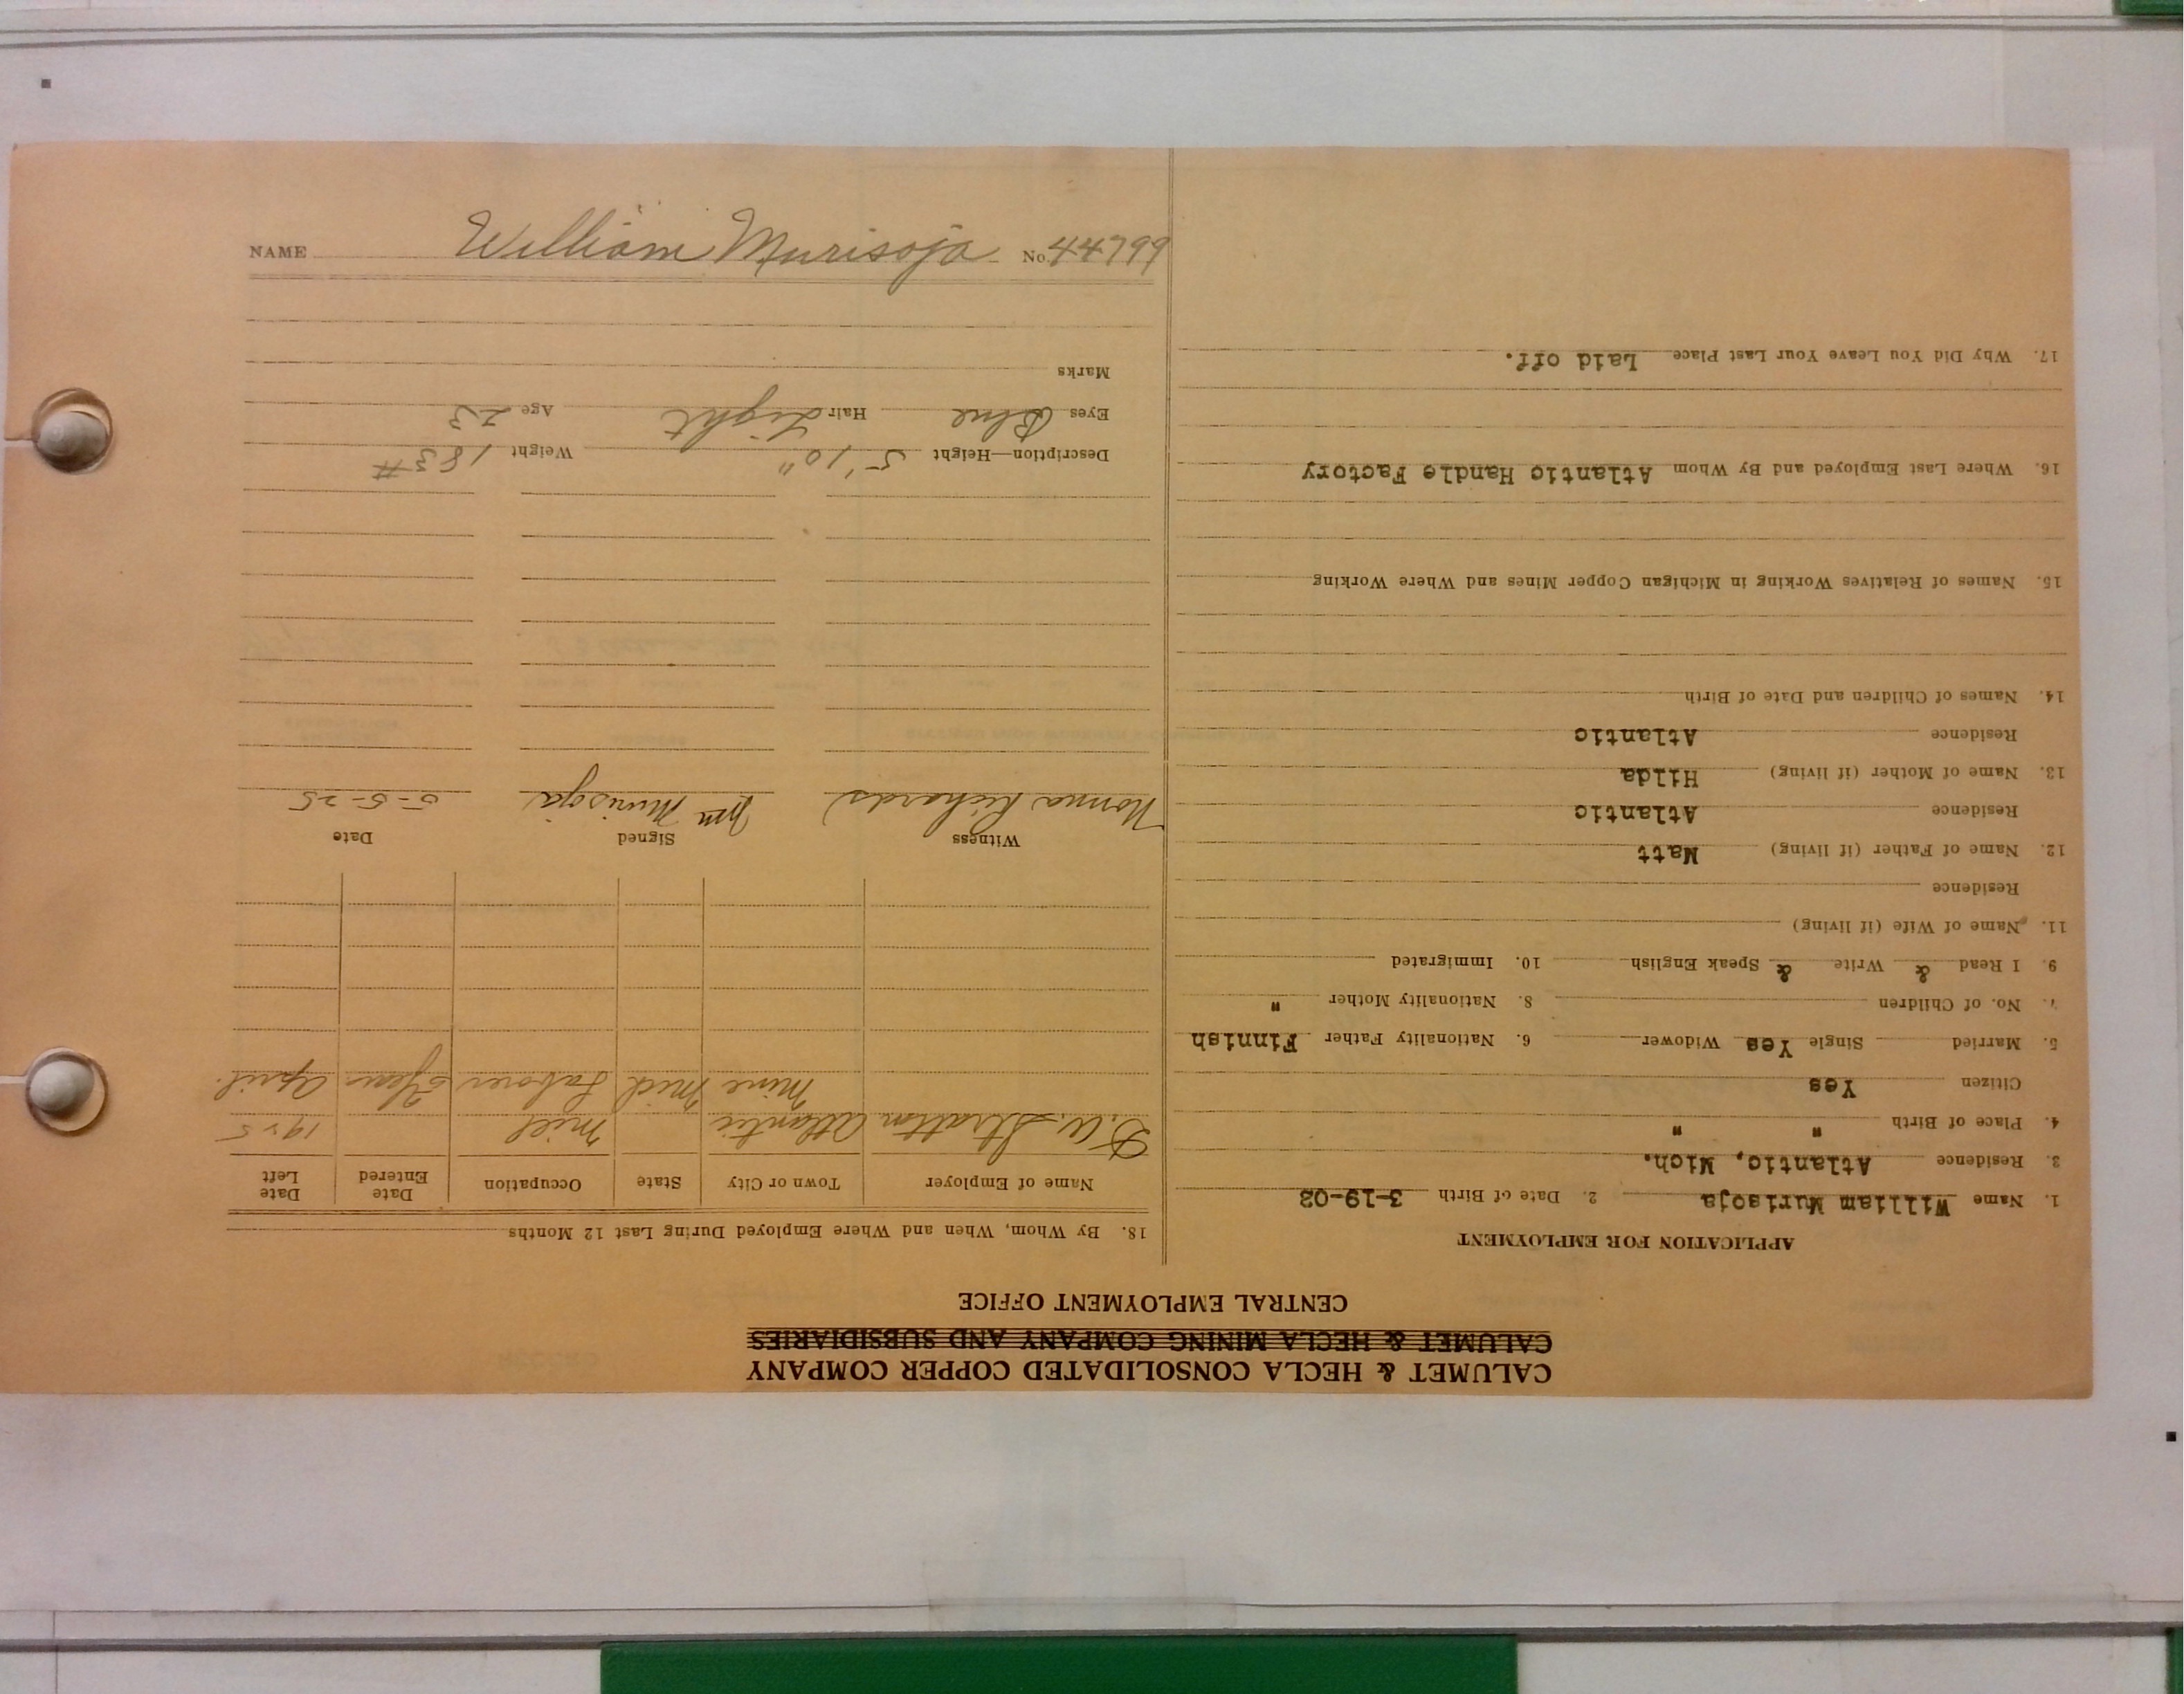 CALUMET & HECLA CONSOLIDATED COPPER COMPANY
CALUMET & HECLA MINING COMPANY AND SUBSIDIARIES
CENTRAL EMPLOYMENT OFFICE
APPLICATION FOR EMPLOYMENT
1. Name William Murisoja 2. Date of Birth 3-19-02
3. Residence Atlantic, Mich.
4. Place of Birth " "
Citizen Yes
5. Married Single Yes Widower 6. Nationality Father Finnish
7. No. of Children 8. Nationality Mother "
9. I Read & Write & Speak English 10. Immigrated
11. Name of Wife (if living)
Residence
12. Name of Father (if living) Matt
Residence Atlantic
13. Name of Mother (if living) Hilda
Residence Atlantic
14. Names of Children and Date of Birth
15. Names of Relatives Working in Michigan Copper Mines and Where Working
16. Where Last Employed and By Whom Atlantic Handle Factory
17. Why Did You Leave Your Last Place Laid off.
18. By Whom, When and Where Employed During Last 12 Months
Name of Employer Town or City State Occupation Date Entered Date Left
D. W. Stratton Atlantic Mill 1925
Mine Mich Laborer April.
Witness Signed Date
Norma Richards Wm Murisoja 5-5-25
Description—Height 5'10" Weight 183#
Eyes Blue Hair Light Age 23
Marks
NAME William Murisoja No. 44799